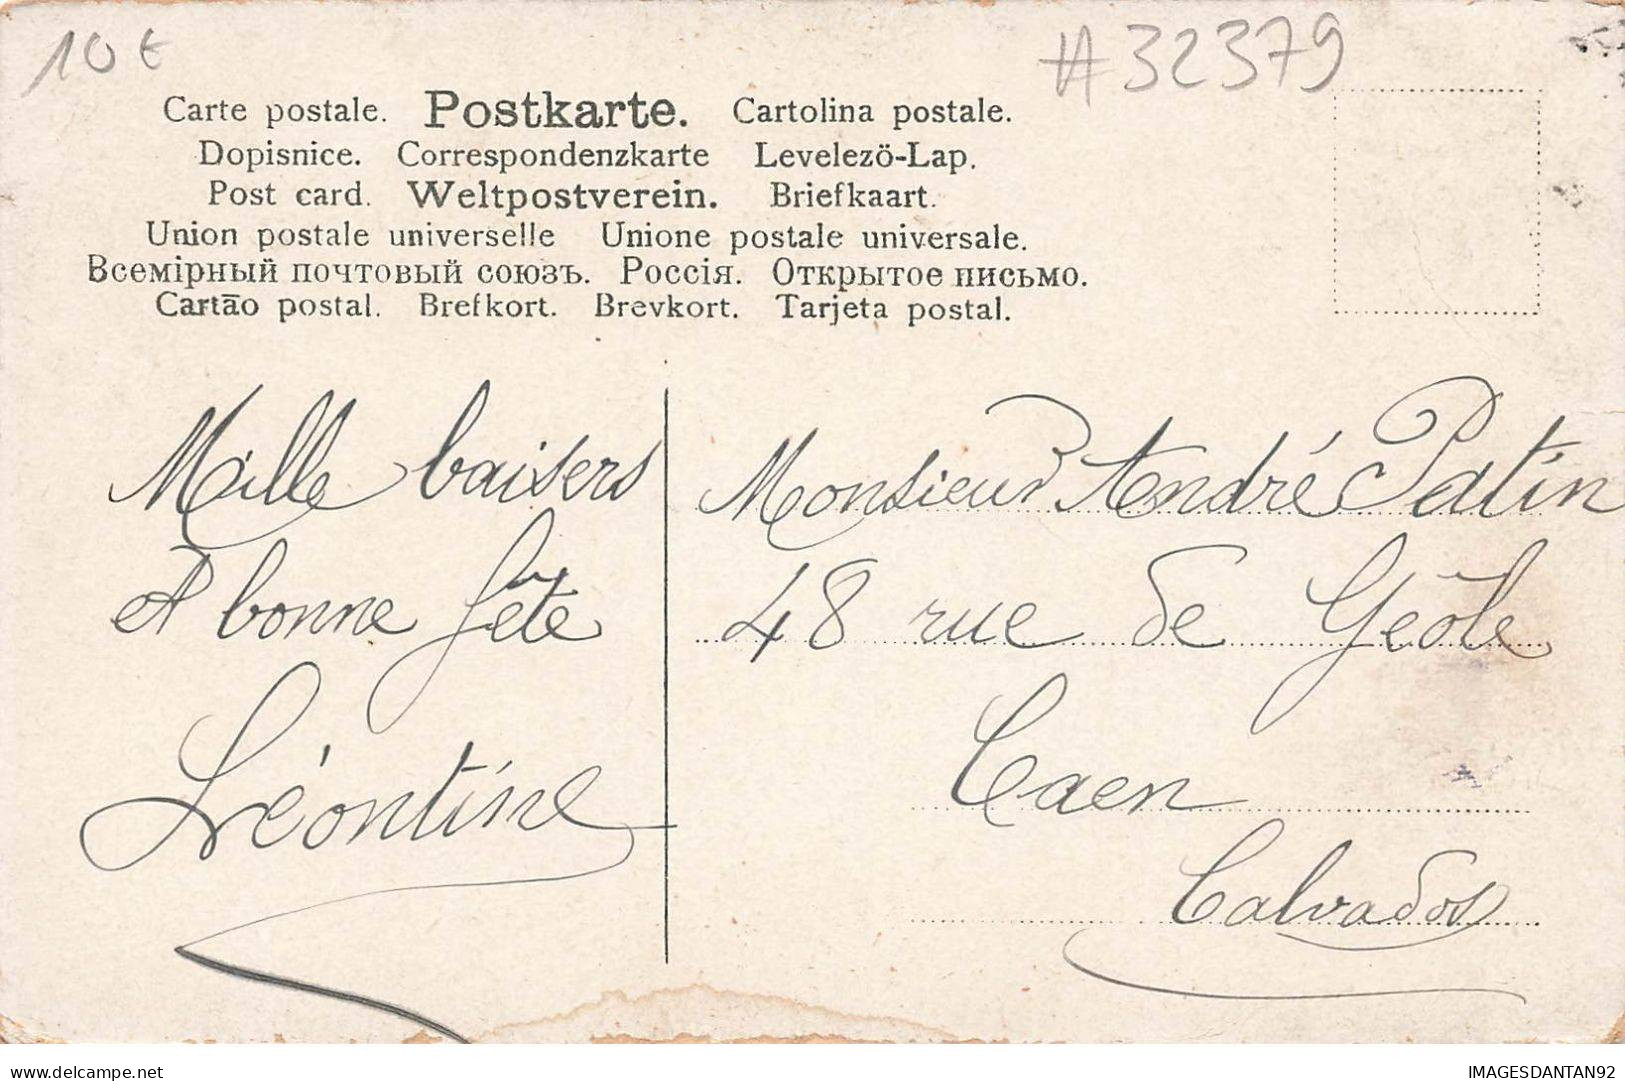 10€
#32379
Carte postale. Postkarte. Cartolina postale.
Dopisnice. Correspondenzkarte Levelezö-Lap.
Post card. Weltpostverein. Briefkaart.
Union postale universelle Unione postale universale.
Всемірный почтовый союзъ. Россія. Открытое письмо.
Cartāo postal. Brefkort. Brevkort. Tarjeta postal.
Mille baisers
et bonne fête
Léontine
Monsieur André Patin
48 rue de Geôle
Caen
Calvados
delcampe.net
IMAGESDANTAN92